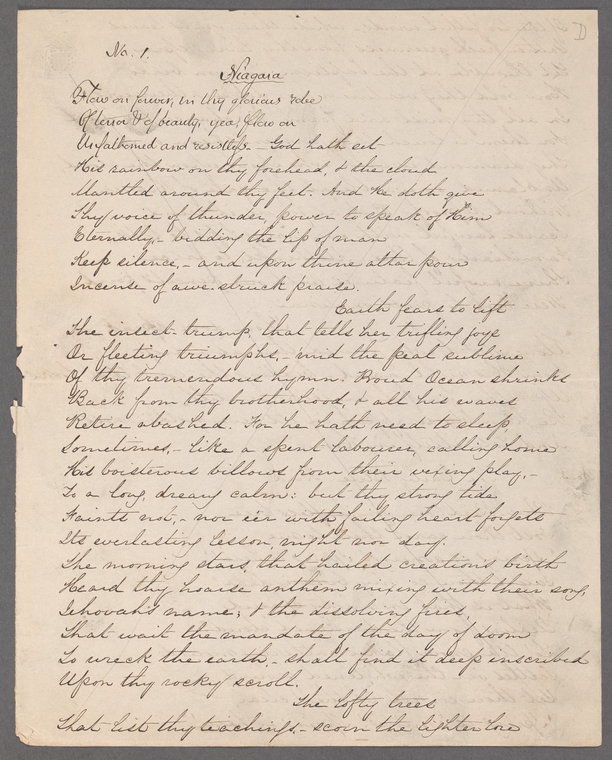 D
No. 1.
Niagara
Flow on forever, in thy glorious robe
Of terror & of beauty, yea, flow on
Unfathomed and resistless. - God hath set
His rainbow on thy forehead, & the cloud
Mantled around thy feet. And He doth give
Thy voice of thunder, power to speak of Him
Eternally, - bidding the lip of man
Keep silence, - and upon thine altar pour
Incense of awe-struck praise.
Earth fears to lift
The insect-trump, that tells her trifling joys
Or fleeting triumphs, - 'mid the peal sublime
Of thy tremendous hymn. Proud Ocean shrinks
Back from thy brotherhood, & all his waves
Retire abashed. For he hath need to sleep,
Sometimes, - like a spent labourer, calling home
His boisterous billows from their vexing play, -
To a long, dreary calm: but thy strong tide
Faints not, - nor e'er with failing heart forgets
Its everlasting lesson, night nor day.
The morning stars, that hailed creation's birth
Heard thy hoarse anthem mixing with their song,
Jehovah's name; & the dissolving fires,
That wait the mandate of the day of doom
To wreck the earth, - shall find it deep inscribed
Upon thy rocky scroll.
The lofty trees
That list thy teachings, - scorn the lighter lore